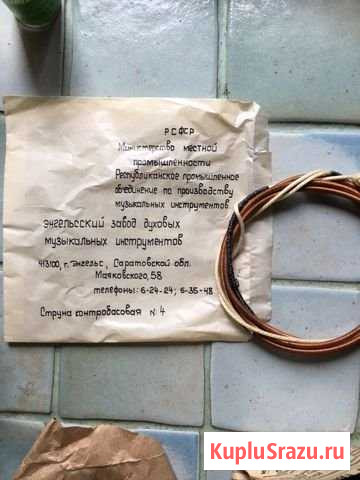 РСФСР
Министерство местной
промышленности
Республиканское промышленное
объединение по производству
музыкальных инструментов
Энгельсский завод духовых
музыкальных инструментов
413100, г. Энгельс, Саратовской обл.
Маяковского, 58
телефоны: 6-24-24; 6-35-48
Струна контробасовая № 4
KupluSrazu.ru